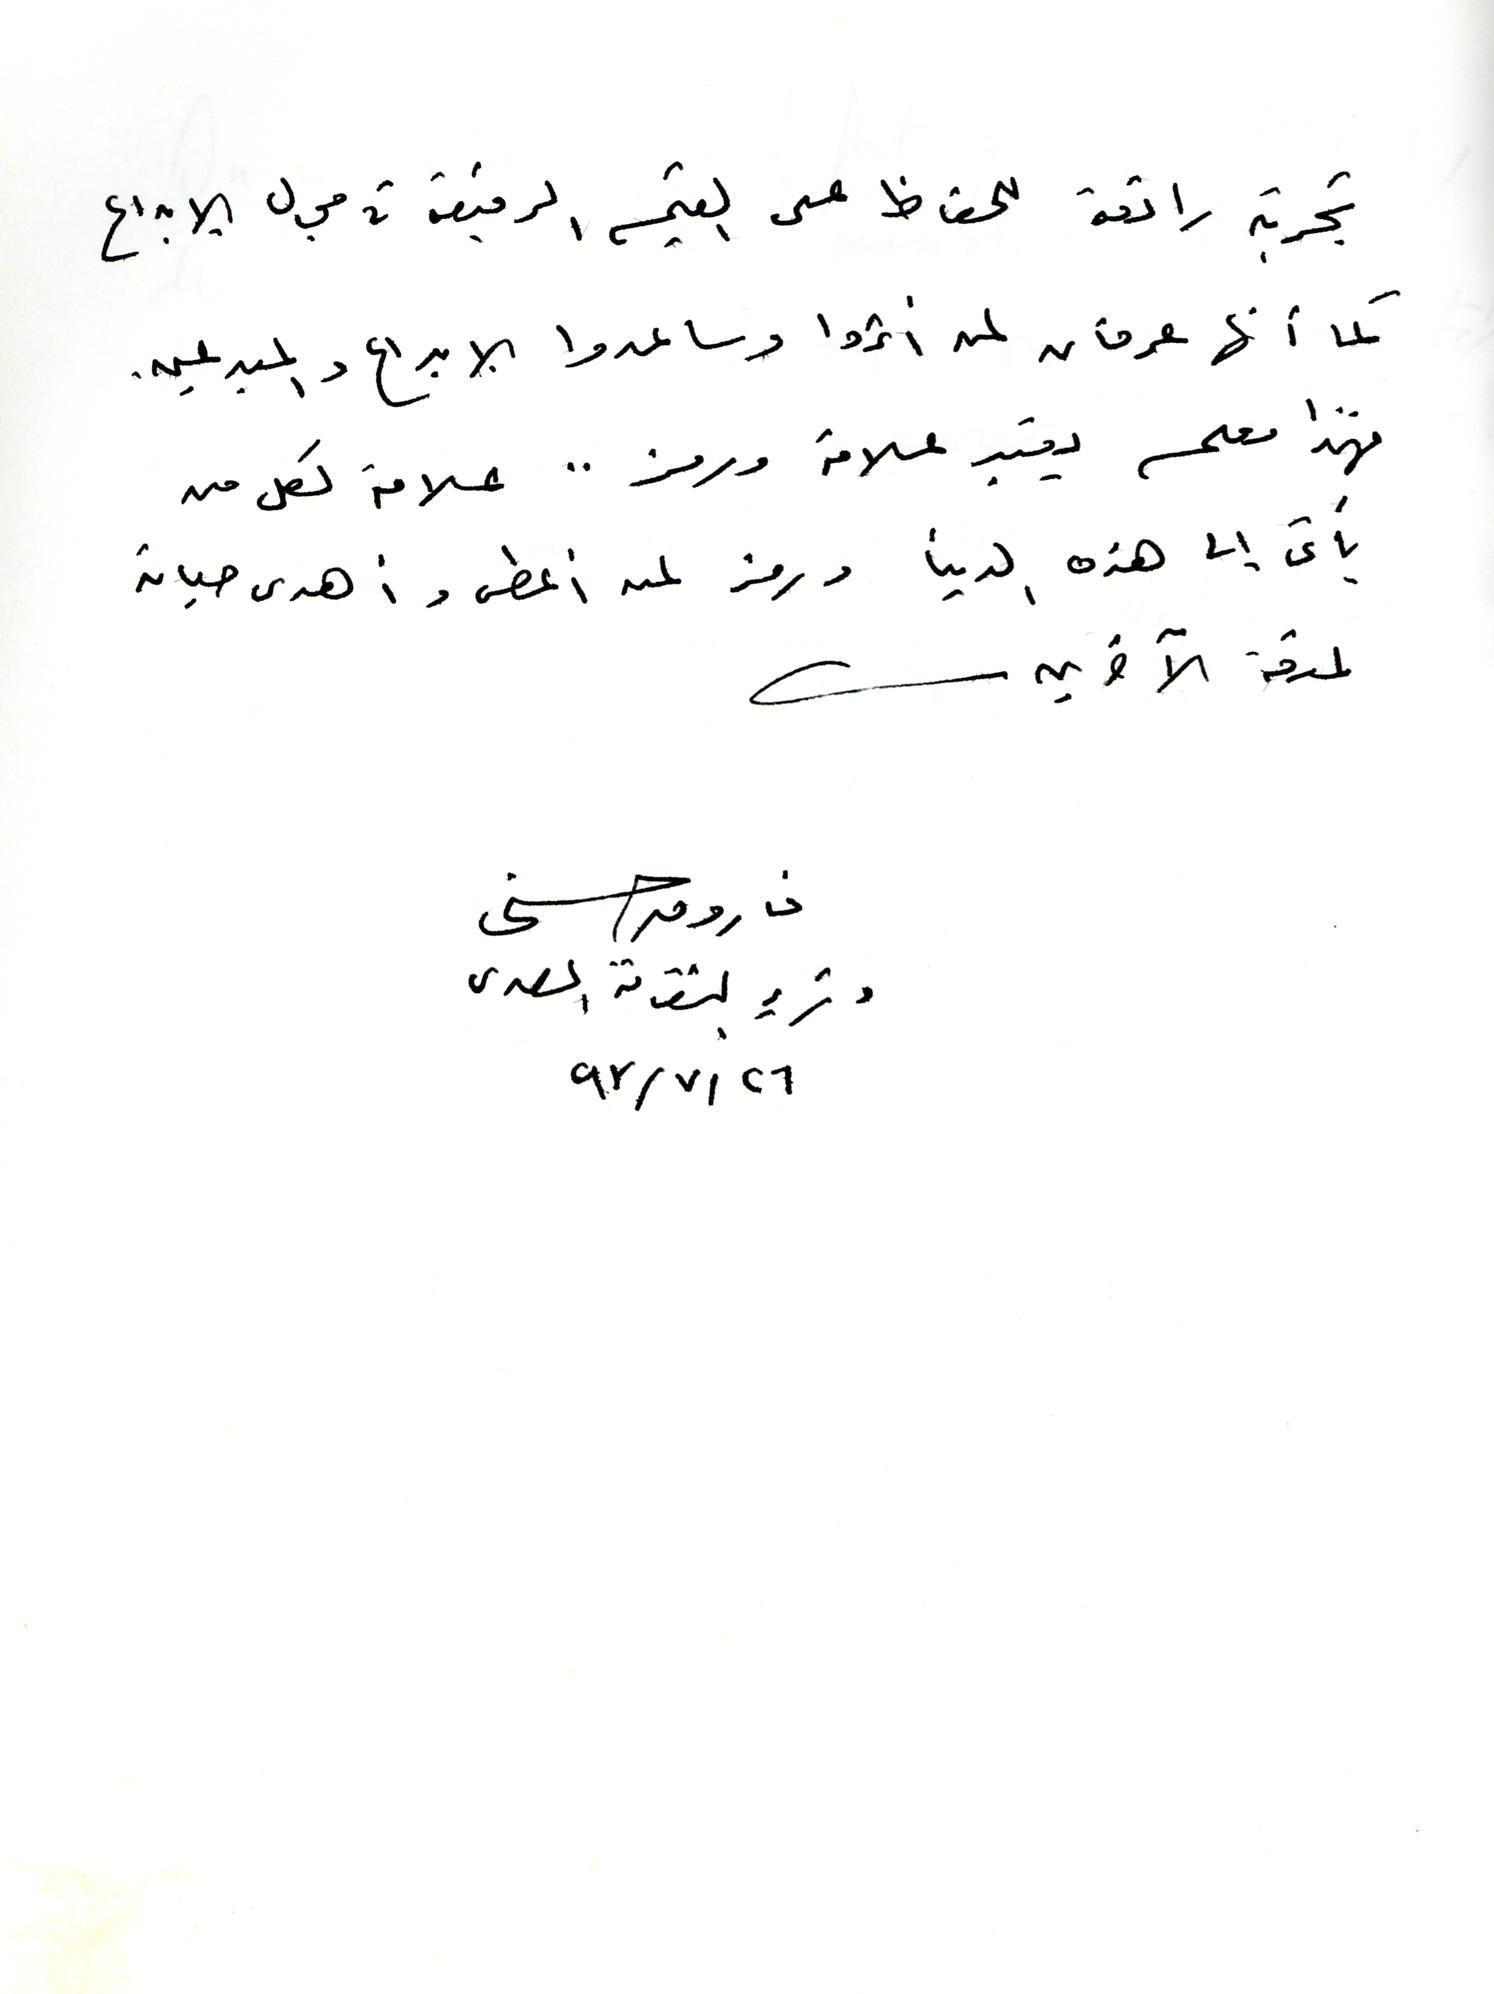 تجربة رائعة للحفاظ على القيم الرفيعة في مجال الإبداع
كما أنها عرفان لمن أثروا وساعدوا الإبداع والمبدعين.
فهذا معلم يعتبر علامة ورمز .. علامة لكل من
يأتي إلى هذه الدنيا ورمز لمن أعطى وأهدى حياته
لمعرفة الآخرين
فاروق حسني
وزير الثقافة المصري
٢٦/٧/٩٢